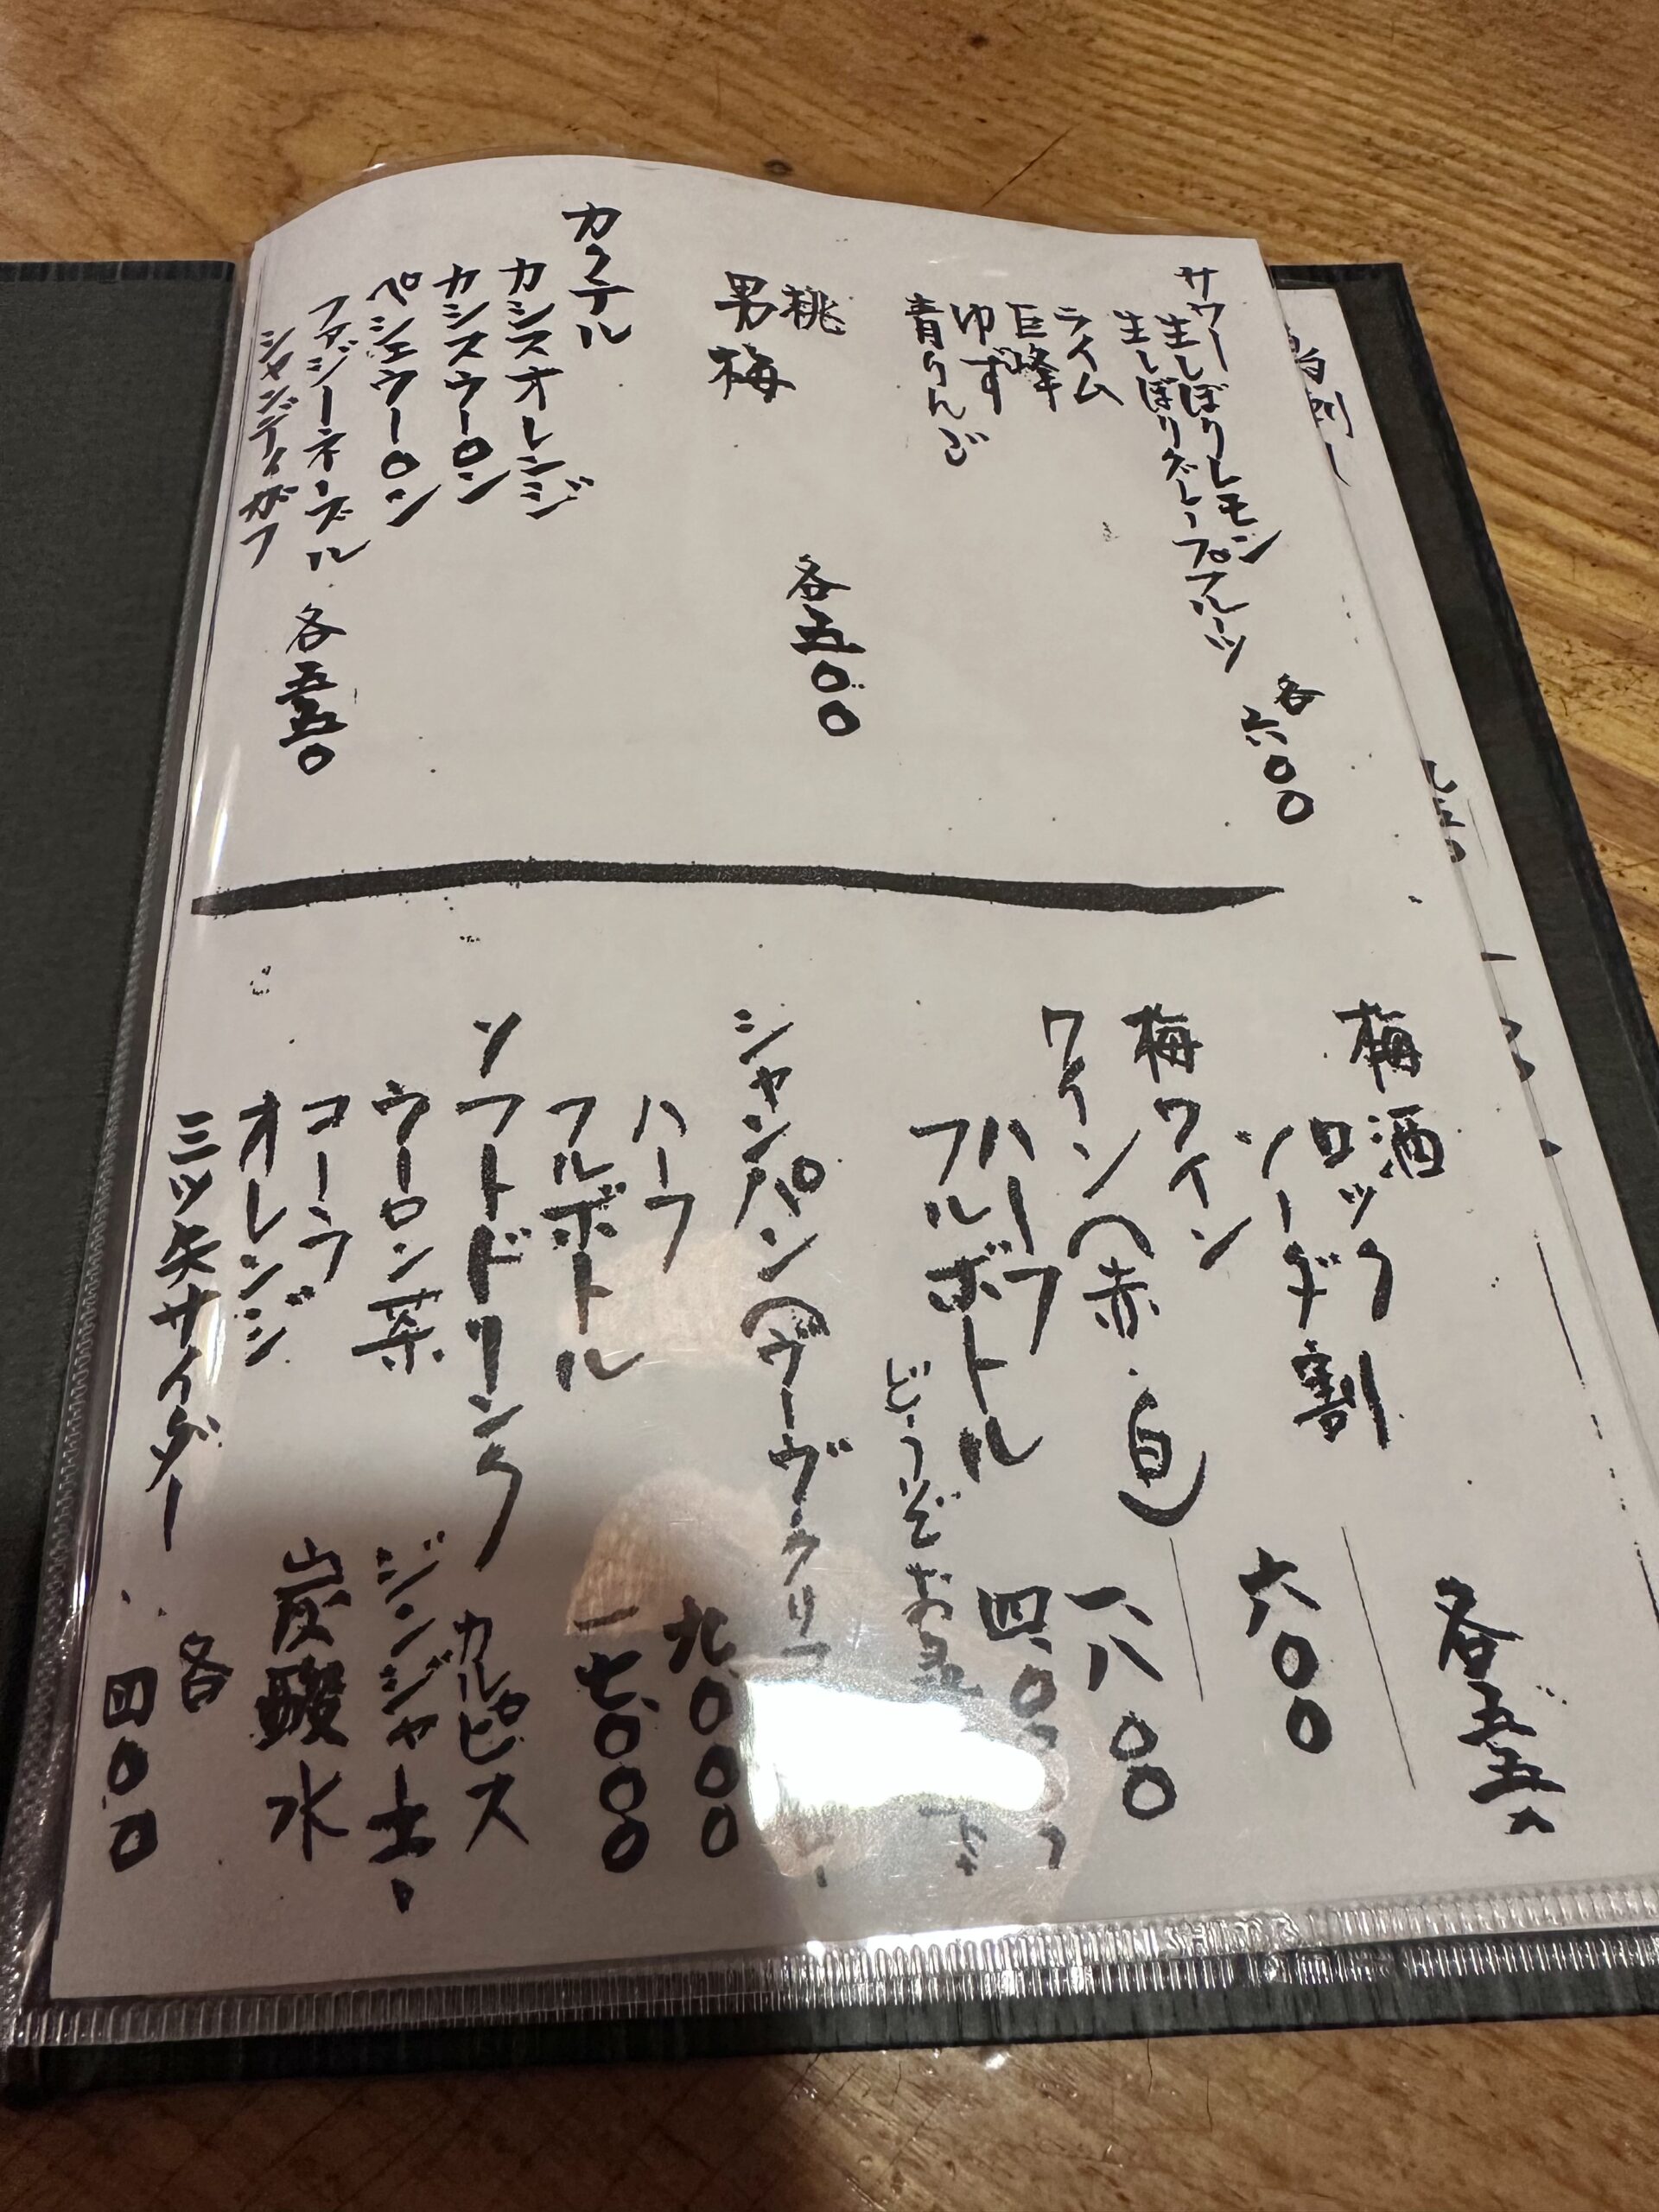 サワー
生しぼりレモン
生しぼりグレープフルーツ
各六〇〇
ライム
巨峰
ゆず
青りんご
桃
男梅
各五〇〇
カクテル
カシスオレンジ
カシスウーロン
ペシェウーロン
ファジーネーブル
シャンディガフ
各五五〇
梅酒
ロック
ソーダ割
各五五〇
梅ワイン
六〇〇
ワイン(赤・白)
ハーフ
一、八〇〇
フルボトル
四、〇
どうぞお
シャンパン(ヴーヴ・クリコ
ハーフ
九、〇〇〇
フルボトル
一七、〇〇〇
ソフトドリンク
カルピス
ウーロン茶
ジンジャエール
コーラ
炭酸水
オレンジ
三ツ矢サイダー
各四〇〇